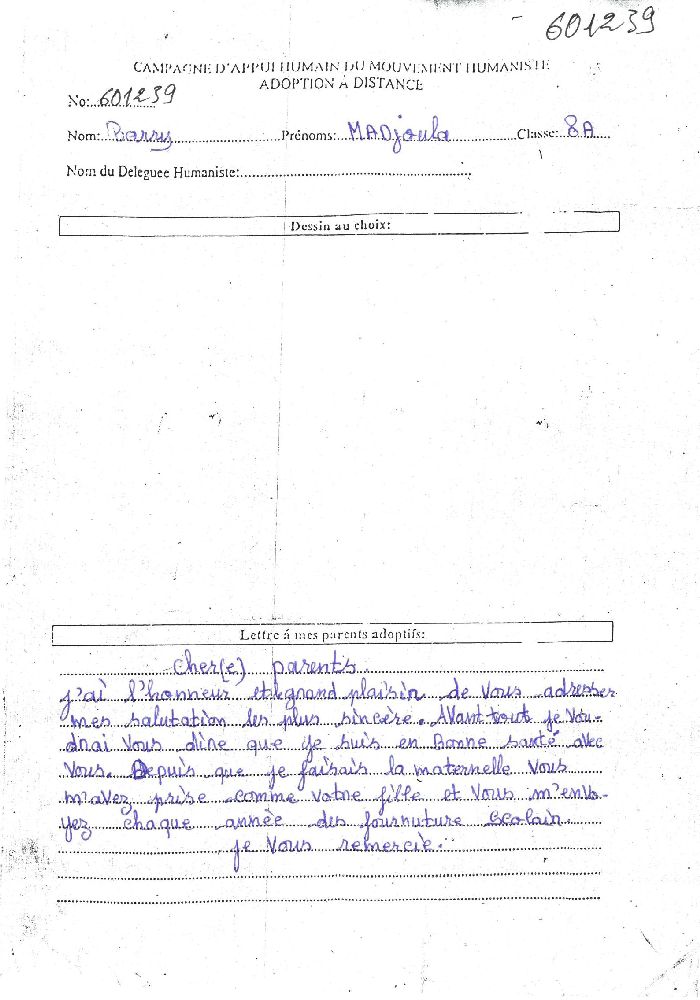 601239
CAMPAGNE D'APPUI HUMAIN DU MOUVEMENT HUMANISTE
ADOPTION A DISTANCE
No:..601239
Nom:..Barry..........Prénoms:..MADjoula..........Classe:.8A....
Nom du Deleguee Humaniste:..............................
Dessin au choix:
Lettre á mes parents adoptifs:
Cher(e) parents
j'ai l'honneur et le grand plaisir de vous adresser
mes salutation les plus sincère. Avant tout je vou-
drai vous dire que je suis en Bonne santé avec
vous. Depuis que je faisais la maternelle vous
m'avez prise comme votre fille et vous m'envo-
yez chaque année des fournuture Scolair.
je vous remercie.